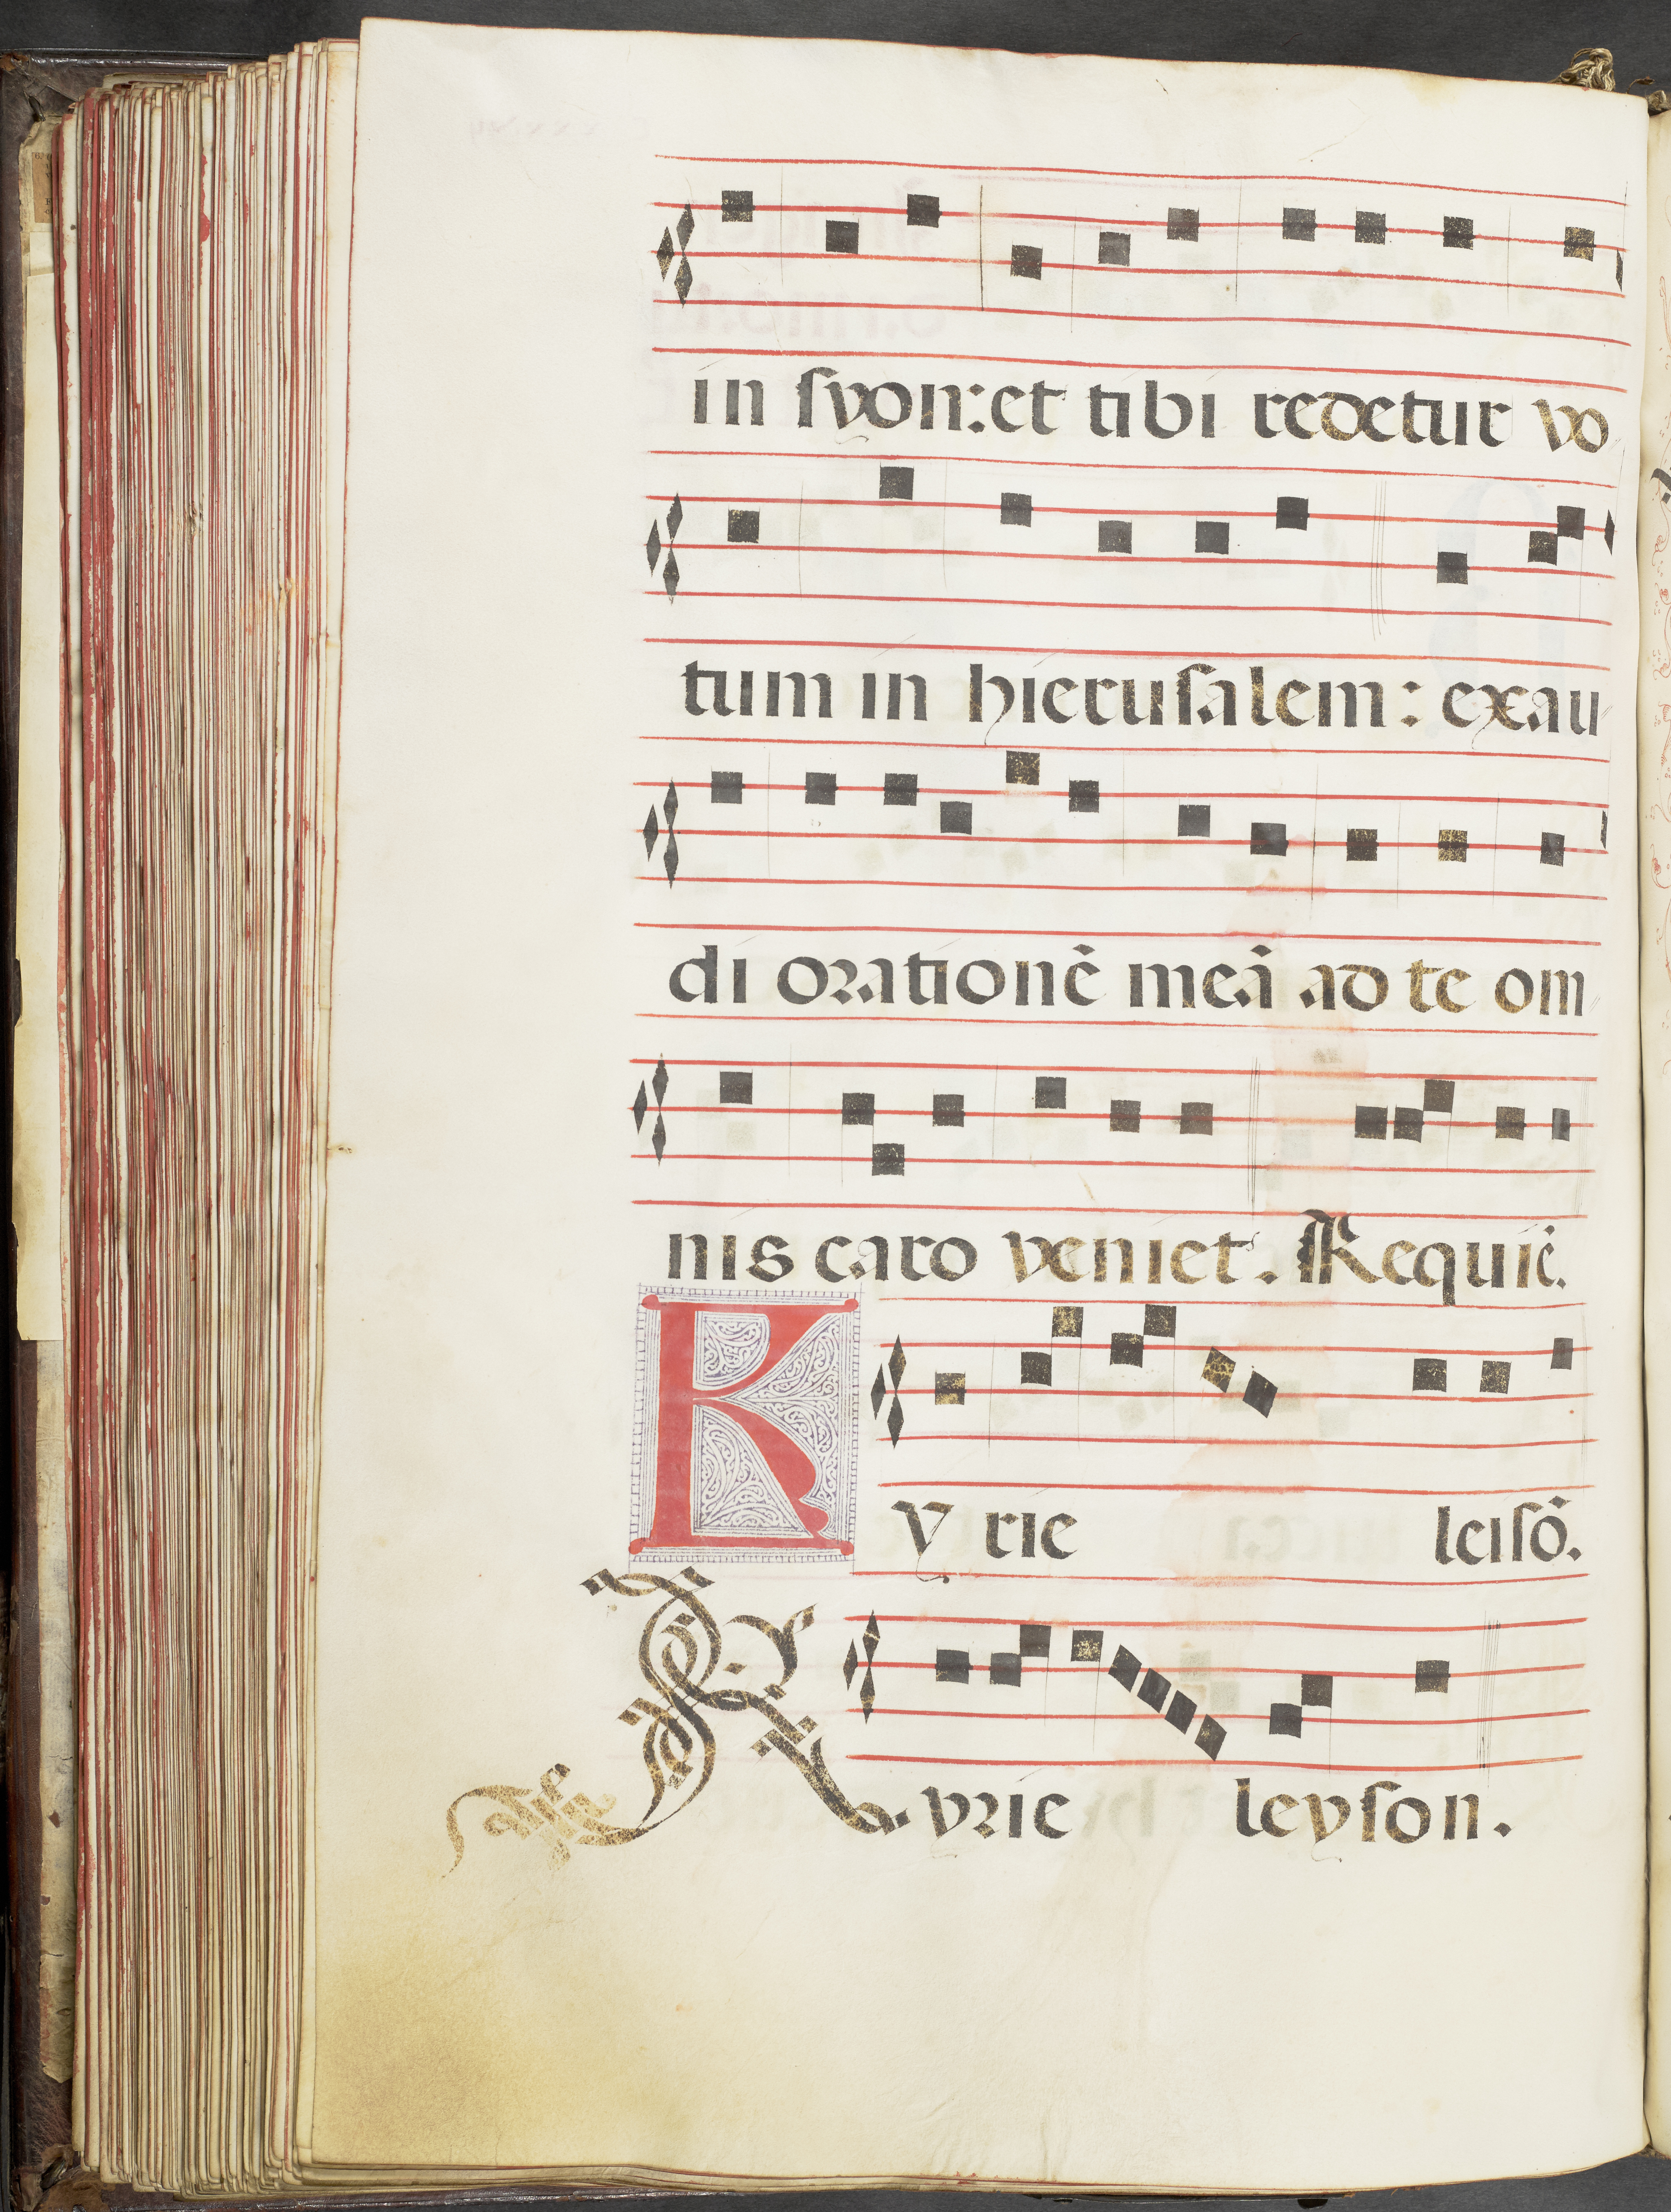 in syon: et tibi redetur vo
tum in hierusalem: exau
di orationē meā ad te om
nis caro veniet. Requiē.
Kyrie leisō.
Kyrie leyson.